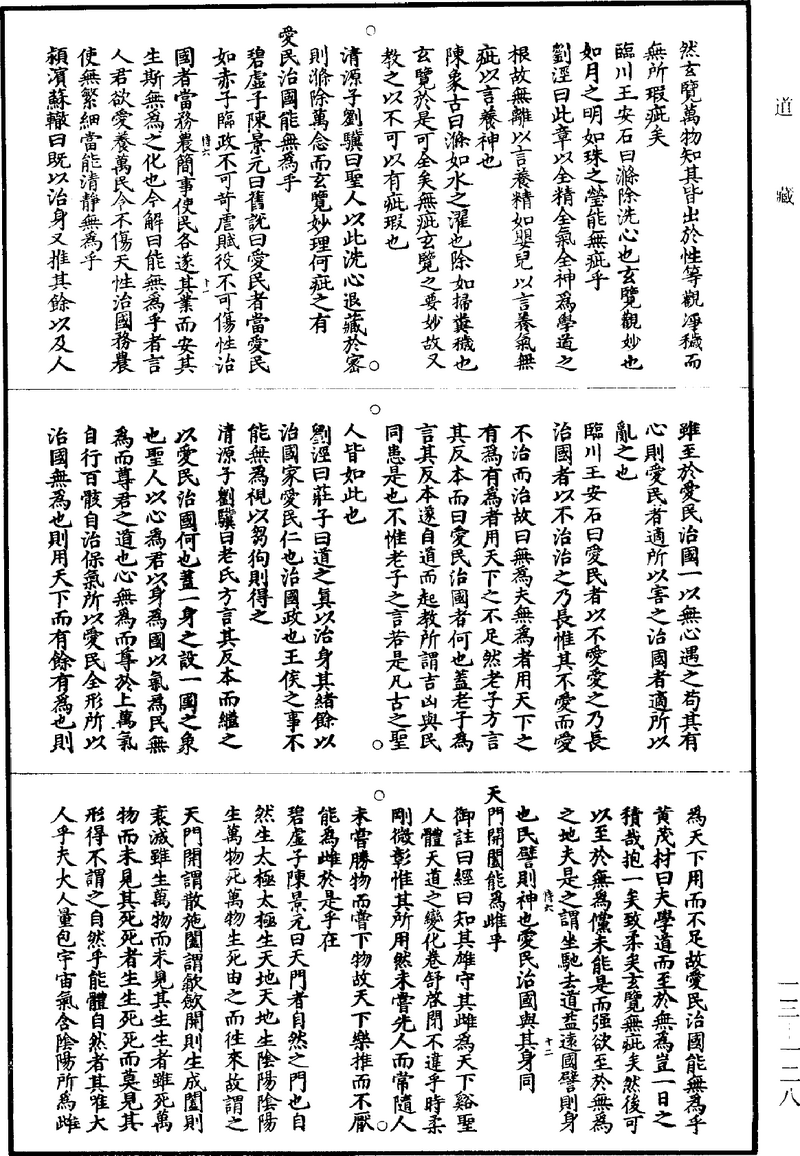 道藏
然玄覽萬物知其皆出於性等觀淨穢而
無所瑕疵矣
臨川王安石曰滌除洗心也玄覽觀妙也
如月之明如珠之瑩能無疵乎
劉涇曰此章以全精全氣全神為學道之
根故無離以言養精如嬰兒以言養氣無
疵以言養神也
陳象古曰滌如水之濯也除如掃糞穢也
玄覽於是可全矣無疵玄覽之要妙故又
教之以不可以有疵瑕也
清源子劉驥曰聖人以此洗心退藏於密
則滌除萬念而玄覽妙理何疵之有
愛民治國能無為乎
碧虛子陳景元曰舊說曰愛民者當愛民
如赤子臨政不可苛虐賦役不可傷性治
國者當務農簡事使民各遂其業而安其
生斯無為之化也今解曰能無為乎者言
人君欲愛養萬民令不傷天性治國務農
使無繁細當能清靜無為乎
潁濱蘇轍曰既以治身又推其餘以及人
雖至於愛民治國一以無心遇之苟其有
心則愛民者適所以害之治國者適所以
亂之也
臨川王安石曰愛民者以不愛愛之乃長
治國者以不治治之乃長惟其不愛而愛
不治而治故曰無為夫無為者用天下之
有為有為者用天下之不足然老子方言
其反本而曰愛民治國者何也蓋老子為
言其反本遂自道而起教所謂吉凶與民
同患是也不惟老子之言若是凡古之聖
人皆如此也
劉涇曰莊子曰道之真以治身其緒餘以
治國家愛民仁也治國政也王侯之事不
能無為視以芻狗則得之
清源子劉驥曰老氏方言其反本而繼之
以愛民治國何也蓋一身之設一國之象
也聖人以心為君以身為國以氣為民無
為而尊君之道也心無為而尊於上萬氣
自行百骸自治保氣所以愛民全形所以
治國無為也則用天下而有餘有為也則
為天下用而不足故愛民治國能無為乎
黃茂材曰夫學道而至於無為豈一日之
積哉抱一矣致柔矣玄覽無疵矣然後可
以至於無為儻未能是而强欲至於無為
之地夫是之謂坐馳去道益遠國譬則身
也民譬則神也愛民治國與其身同
天門開闔能為雌乎
御註曰經曰知其雄守其雌為天下谿聖
人體天道之變化卷舒啟閉不違乎時柔
剛微彰惟其所用然未嘗先人而常隨人
未嘗勝物而嘗下物故天下樂推而不厭
能為雌於是乎在
碧虛子陳景元曰天門者自然之門也自
然生太極太極生天地天地生陰陽陰陽
生萬物死萬物生死由之而往來故謂之
天門開謂散施闔謂歛斂開則生成闔則
衰滅雖生萬物而未見其生生者雖死萬
物而未見其死死者生生死死而莫見其
形得不謂之自然乎能體自然者其唯大
人乎夫大人量包宇宙氣含陰陽所為雌
一三——二八